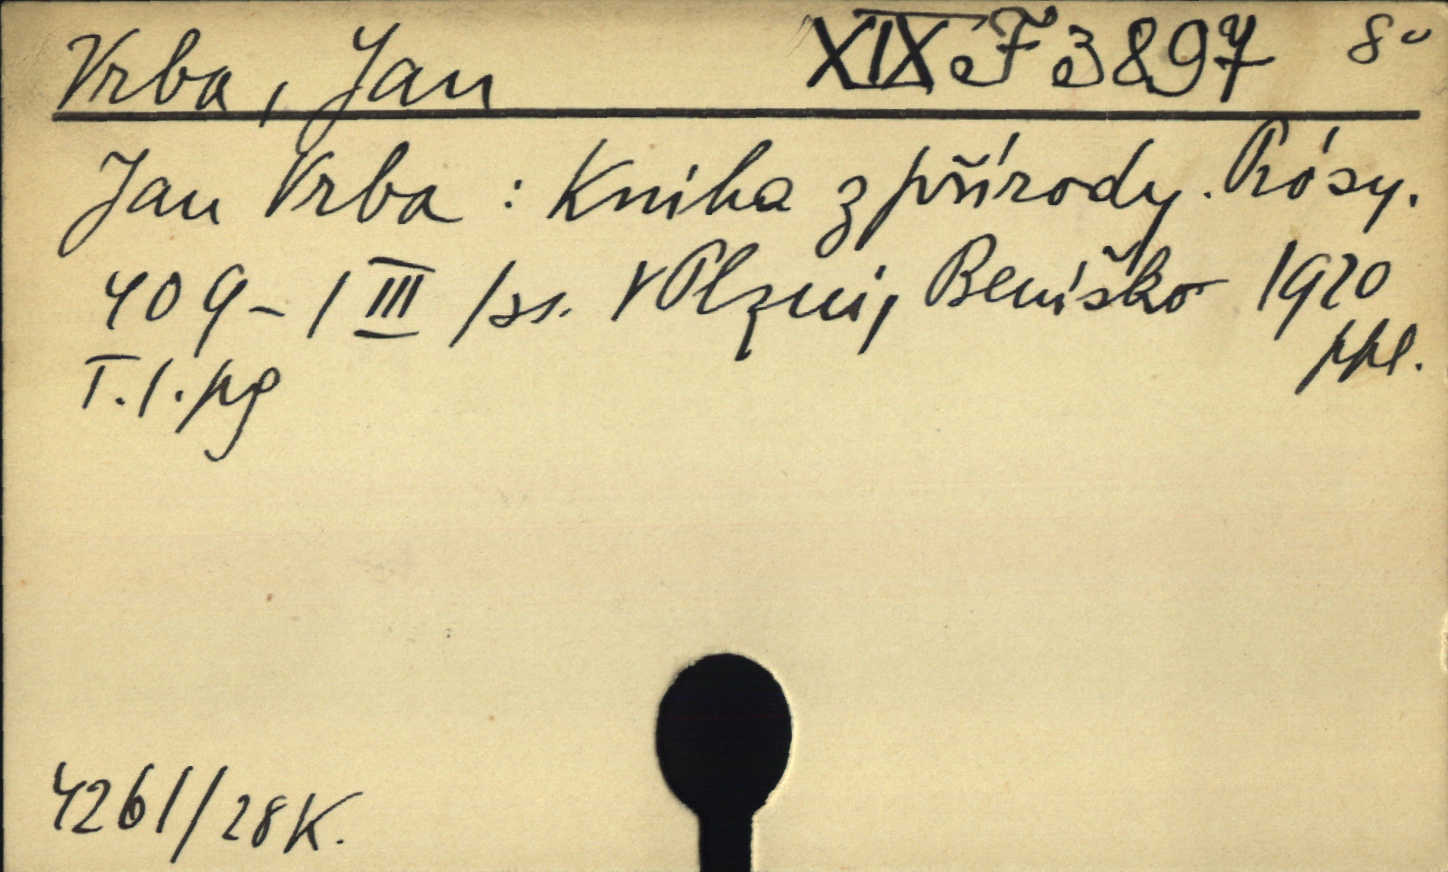 Vrba, Jan XIX F 3897 8°
Jan Vrba : Kniha z přírody. Prósy.
409-1 III /ss. V Plzni, Beníško 1920
ppl.
T.1.pg
4261/28K.